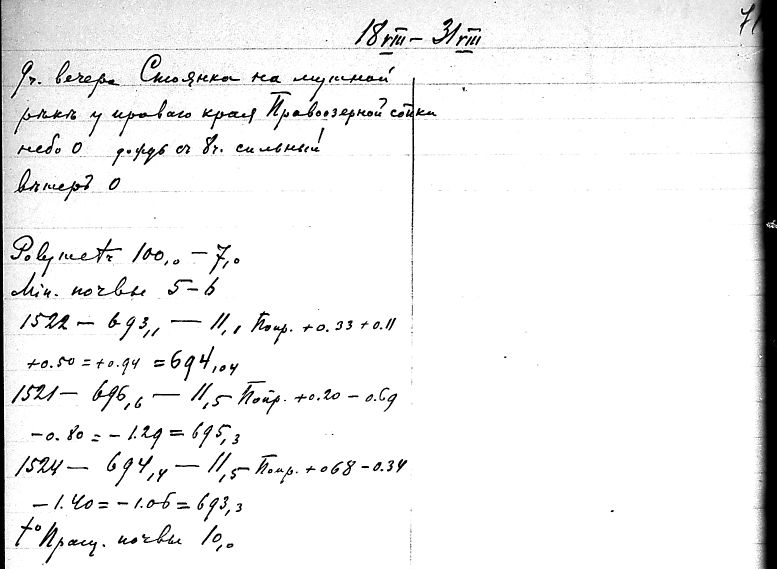 71
18 VIII – 31 VIII
9ч. вечера Стоянка на мутной
рѣкѣ у праваго края Правоозерной сопки
небо 0 дождь съ 8ч. сильный
вѣтеръ 0
Polymetr 100,0 – 7,0
Min. почвы 5–6
1522 – 693,1 – 11,1 Попр. +0.33 +0.11
+0.50 = +0.94 = 694,04
1521 – 696,6 – 11,5 Попр. +0.20 – 0.69
–0.80 = –1.29 = 695,3
1524 – 694,4 – 11,5 Попр. +068 –0.34
–1.40 = –1.06 = 693,3
t° Пращ. почвы 10,0